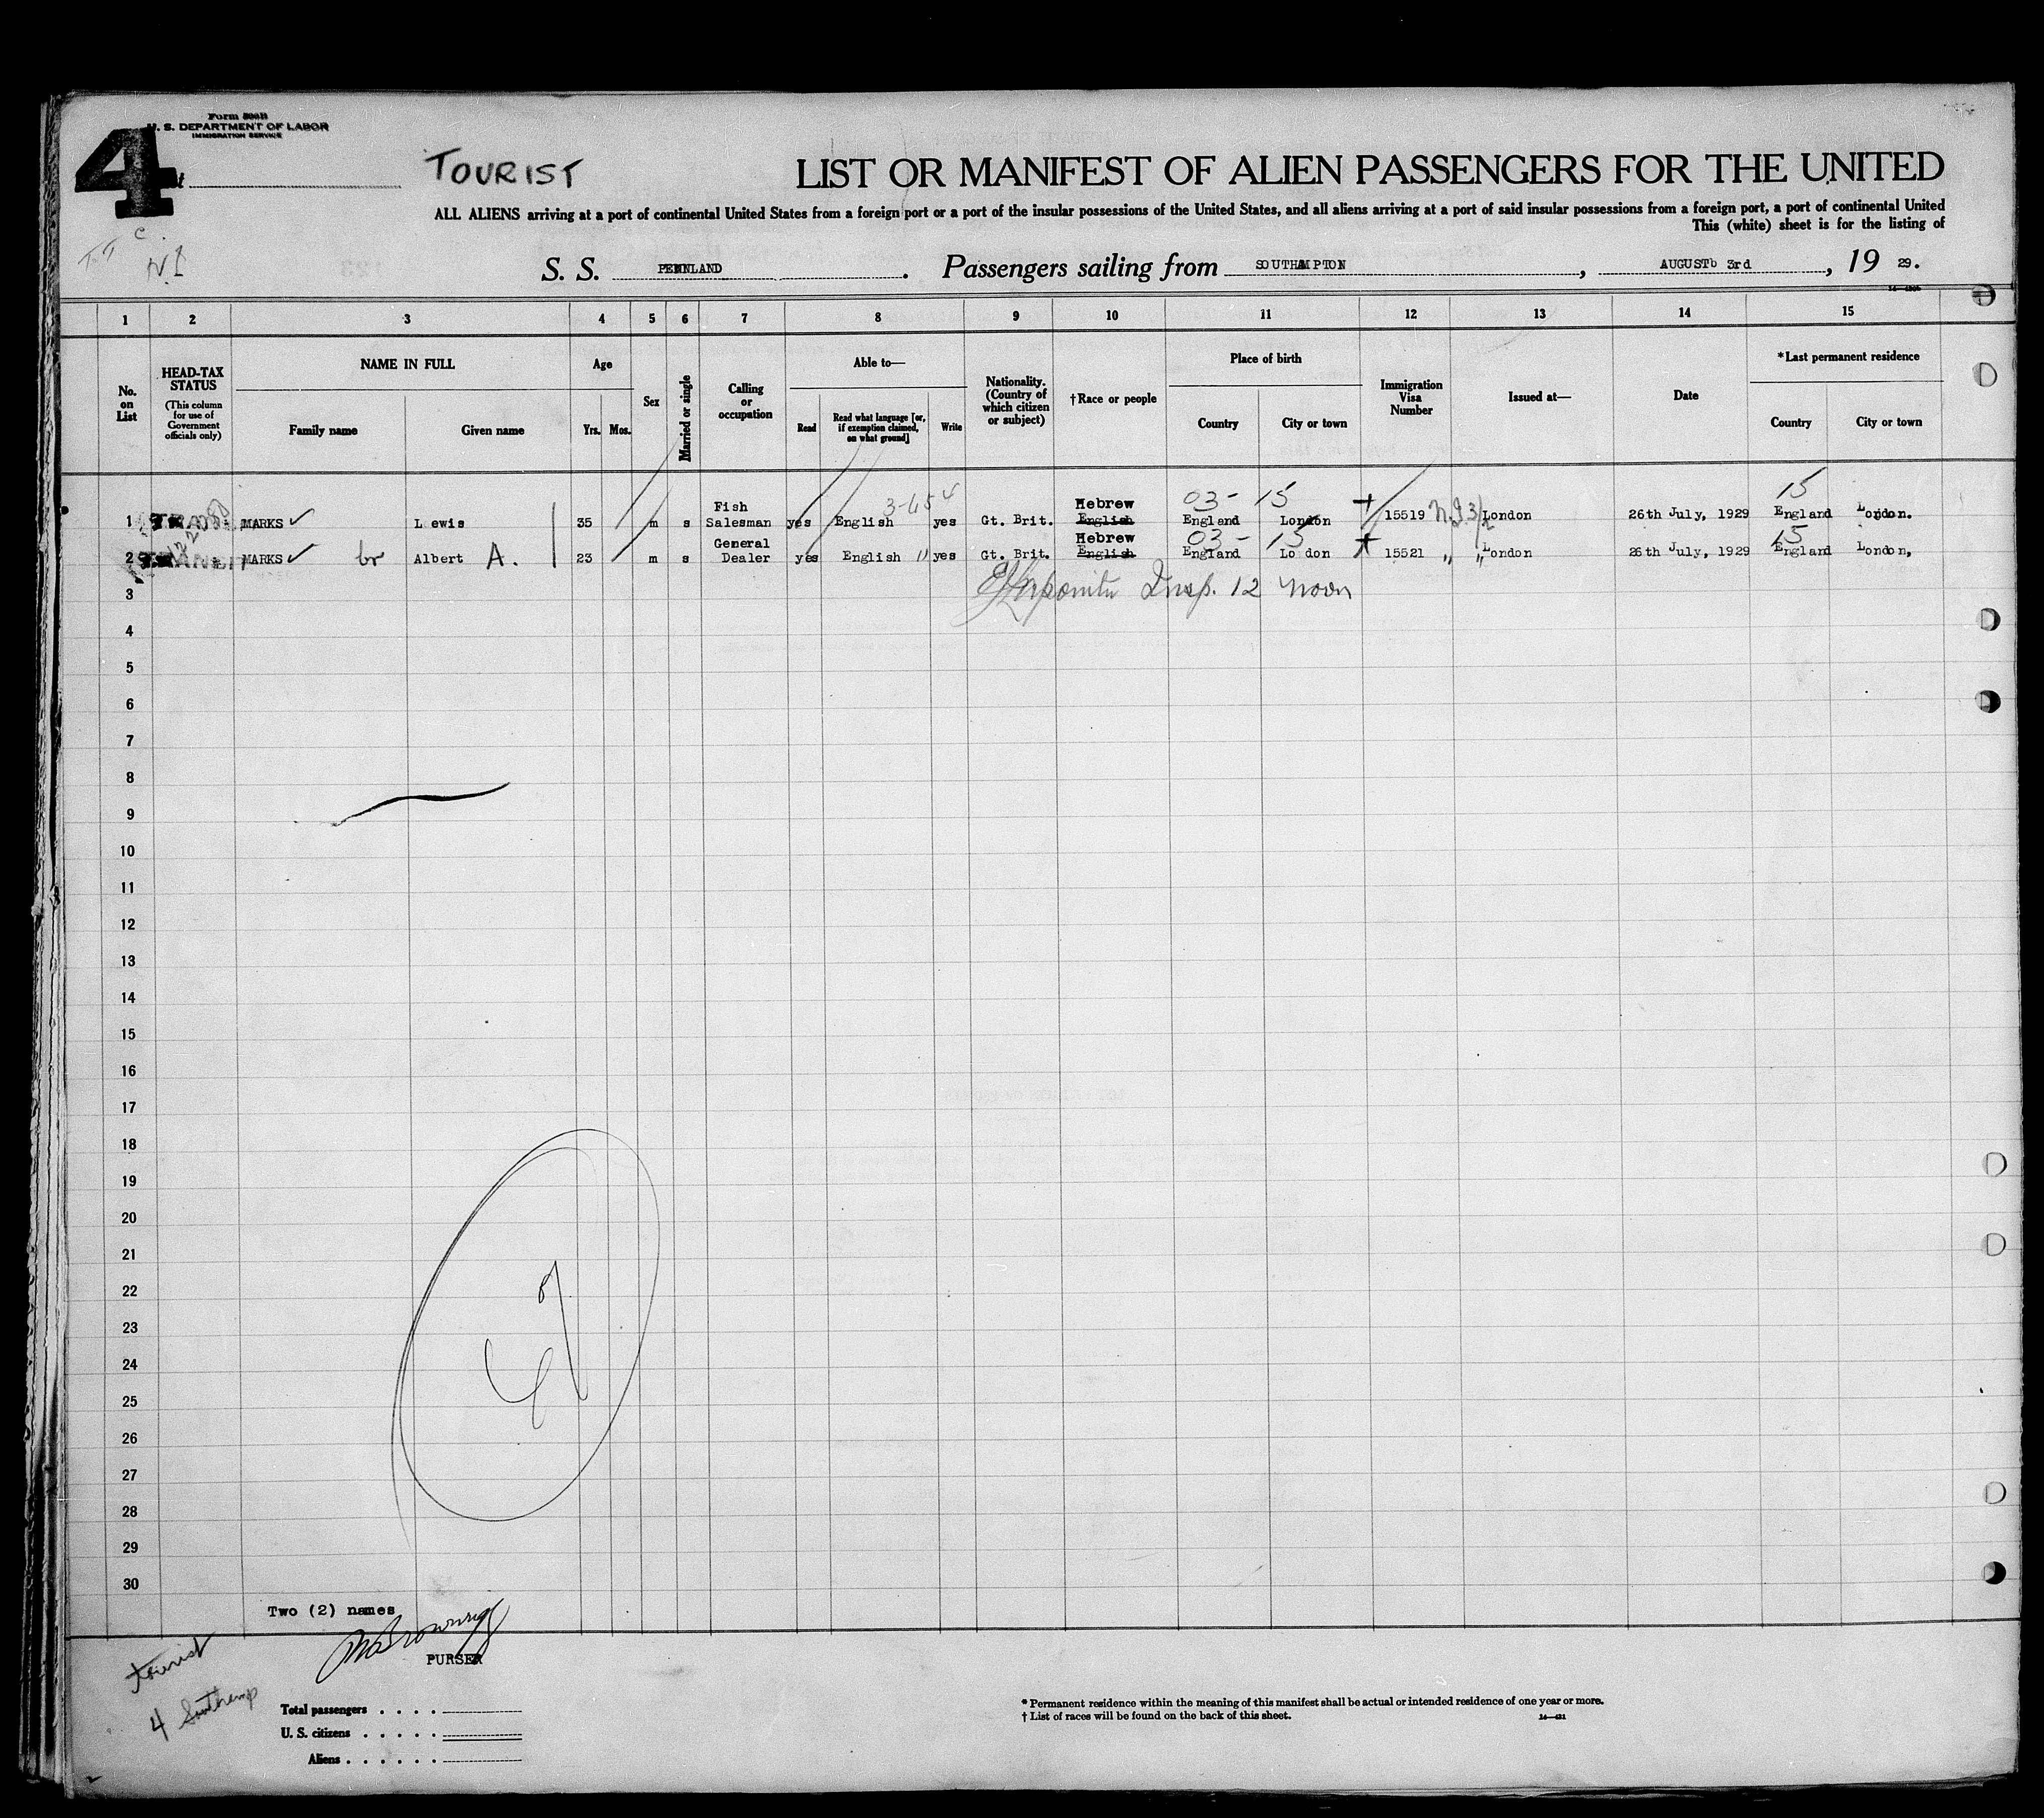 Form 500B
U. S. DEPARTMENT OF LABOR
IMMIGRATION SERVICE
4
TOURIST
LIST OR MANIFEST OF ALIEN PASSENGERS FOR THE UNITED
ALL ALIENS arriving at a port of continental United States from a foreign port or a port of the insular possessions of the United States, and all aliens arriving at a port of said insular possessions from a foreign port, a port of continental United
This (white) sheet is for the listing of
S. S. PENNLAND . Passengers sailing from SOUTHAMPTON , AUGUSTb 3rd , 19 29.
1 2 3 4 5 6 7 8 9 10 11 12 13 14 15
No. on List
HEAD-TAX STATUS (This column for use of Government officials only)
NAME IN FULL
Family name Given name
Age
Yrs. Mos.
Sex
Married or single
Calling or occupation
Able to—
Read Read what language [or, if exemption claimed, on what ground] Write
Nationality. (Country of which citizen or subject)
†Race or people
Place of birth
Country City or town
Immigration Visa Number
Issued at—
Date
*Last permanent residence
Country City or town
Fish 3-654 Hebrew 03- 15 15
1 MARKS ✓ Lewis 35 m s Salesman yes English yes Gt. Brit. English England London 15519 London 26th July, 1929 England London.
General Hebrew 03- 15 15
2 MARKS ✓ br Albert A. 23 m s Dealer yes English " yes Gt. Brit. English England Lo don 15521 " " London 26th July, 1929 England London,
3 Insp. 12 noon
4
5
6
7
8
9
10
11
12
13
14
15
16
17
18
19
20
21
22
23
24
25
26
27
28
29
30
Two (2) names
PURSER
tourist
4 Southamp
Total passengers . . . .
U. S. citizens . . . . .
Aliens . . . . . .
* Permanent residence within the meaning of this manifest shall be actual or intended residence of one year or more.
† List of races will be found on the back of this sheet.